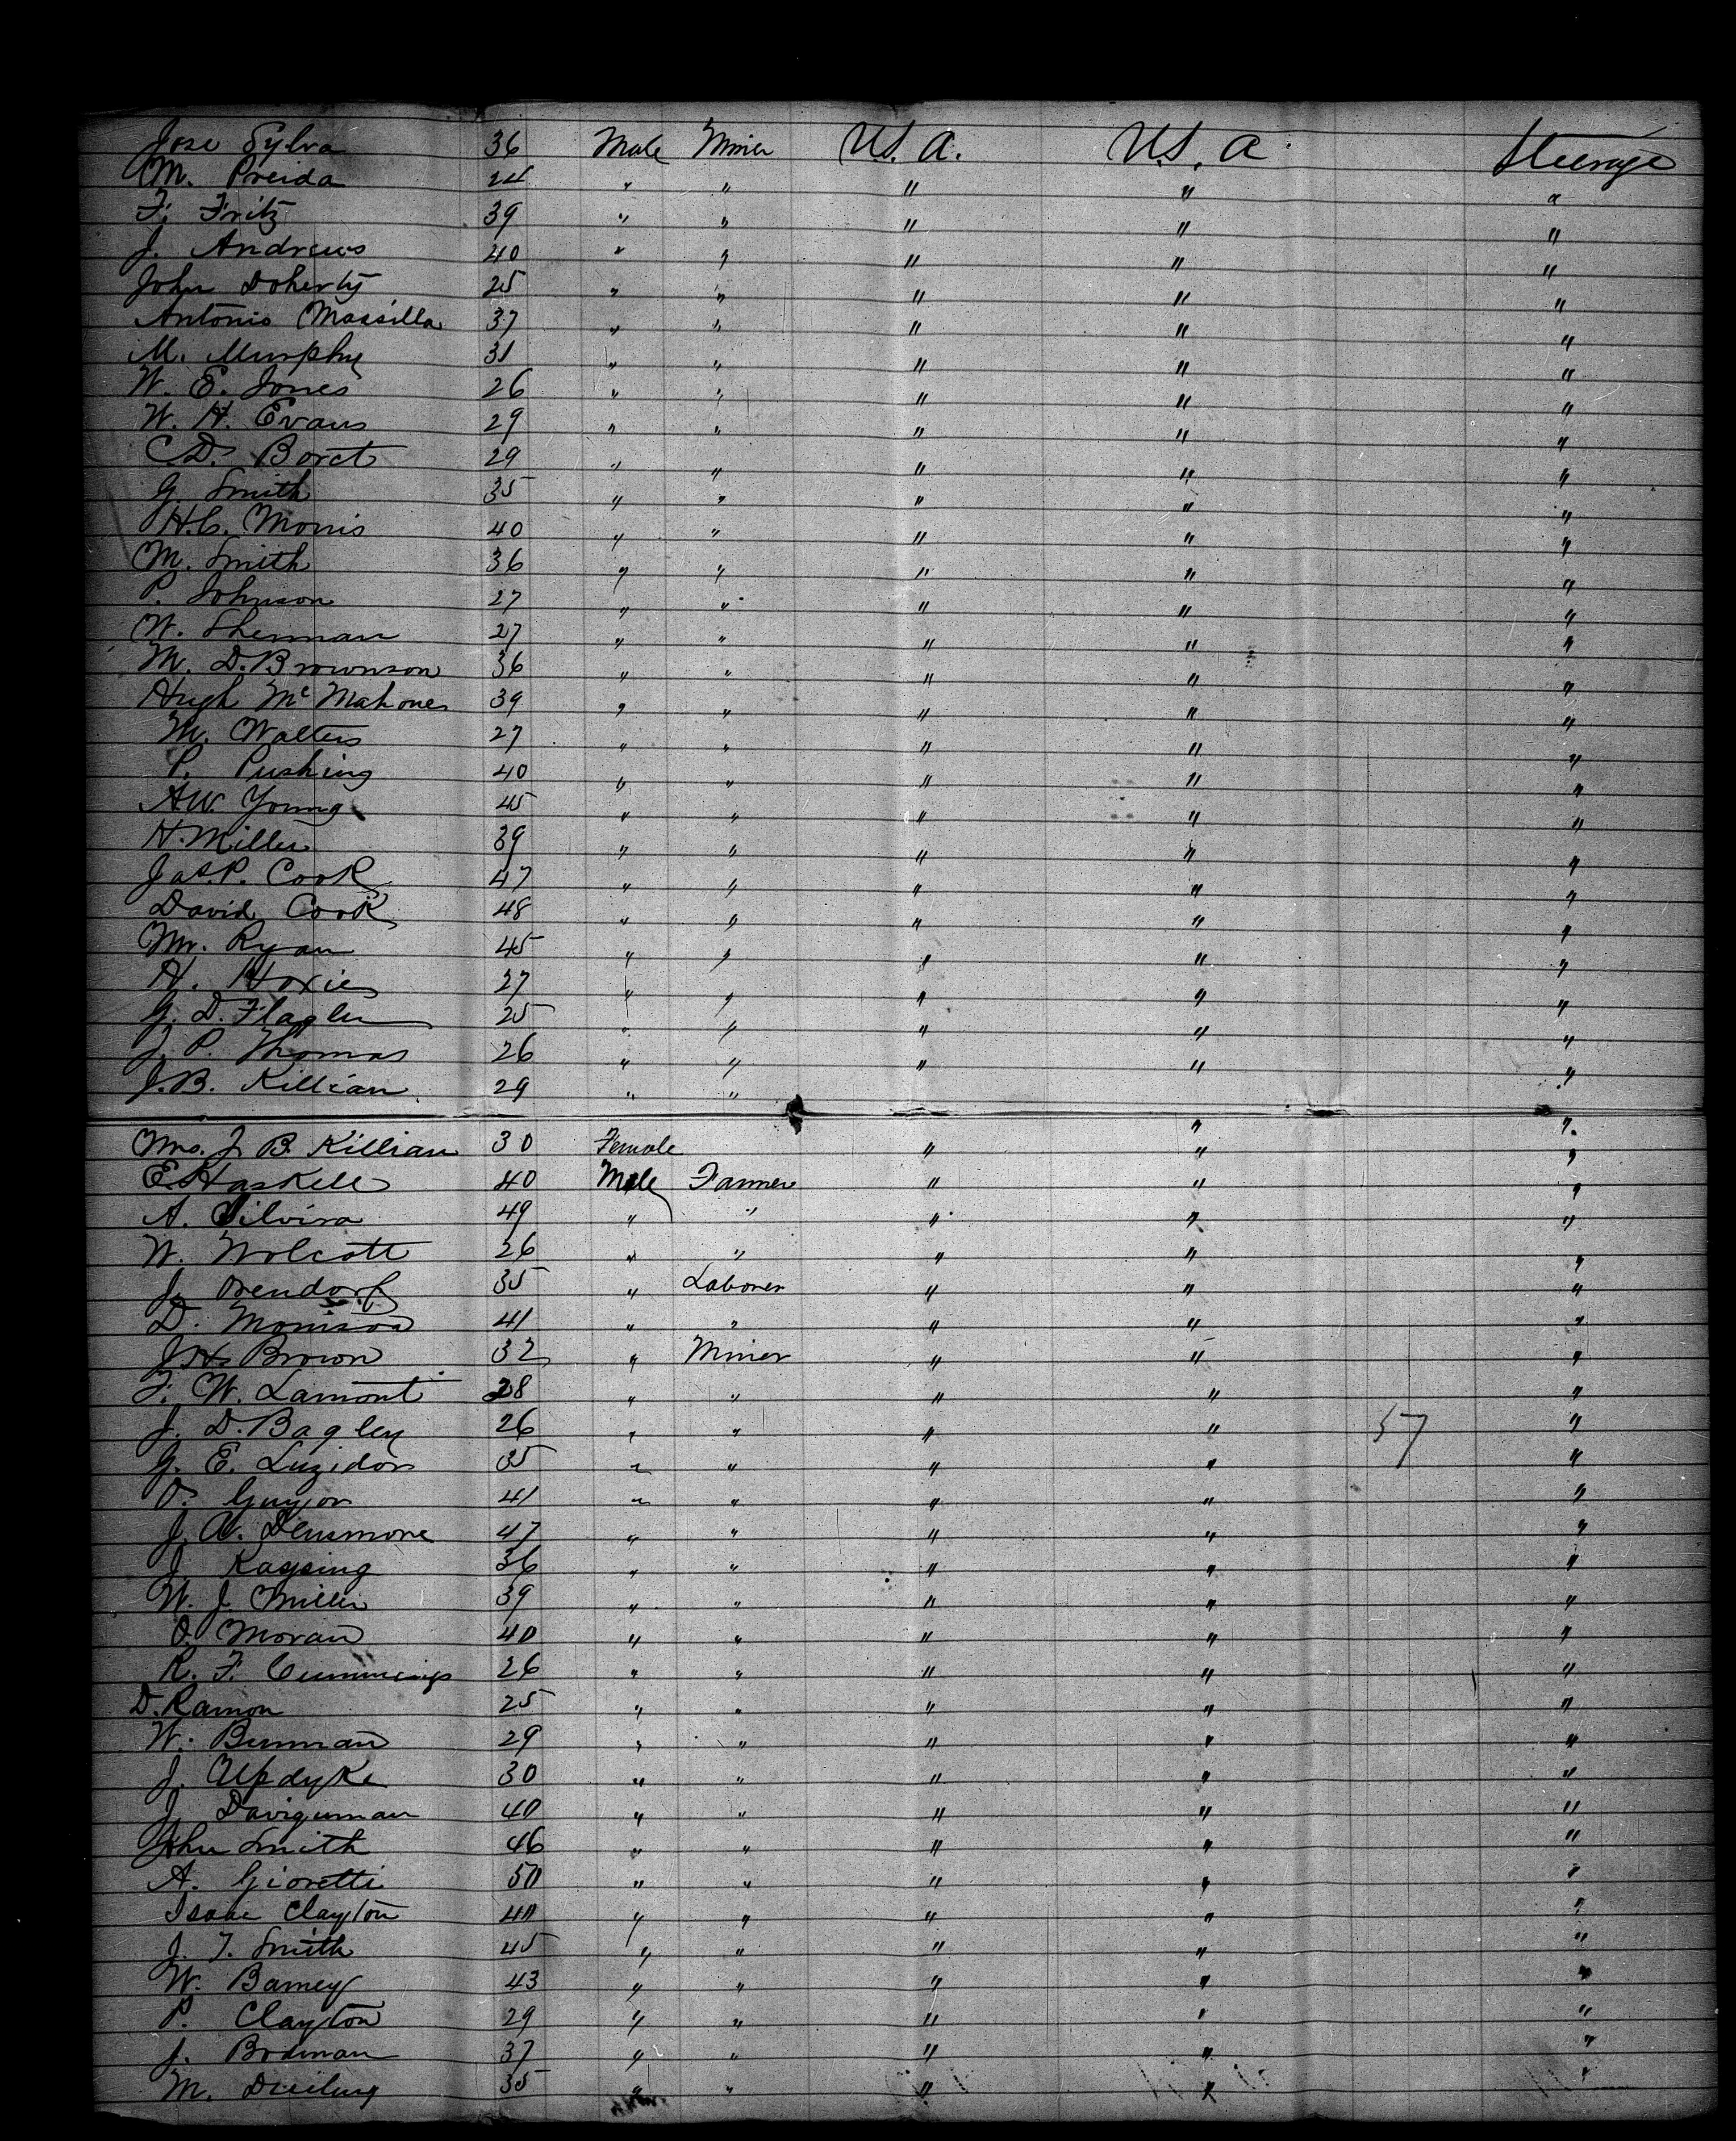 Jose Sylva 36 Male Miner U.S. A. U.S. A Steerage
M. Preida 24 " " " " "
F. Fritz 39 " " " " "
J. Andrews 40 " " " " "
John Doherty 25 " " " " "
Antonio Massilla 37 " " " " "
M. Murphy 31 " " " " "
W. E. Jones 26 " " " " "
W. H. Evans 29 " " " " "
C. D. Borct 29 " " " " "
G. Smith 35 " " " " "
H. C. Morris 40 " " " " "
M. Smith 36 " " " " "
P. Johnson 27 " " " " "
W. Sherman 27 " " " " "
M. D. Brownson 36 " " " " "
Hugh Mc Mahone 39 " " " " "
M. Walters 27 " " " " "
P. Pushing 40 " " " " "
A.W. Young 45 " " " " "
H. Miller 39 " " " " "
Jas. P. Cook 47 " " " " "
David Cook 48 " " " " "
Mr. Ryan 45 " " " " "
H. Hoxie 27 " " " " "
G. D. Flagler 25 " " " " "
J. P. Thomas 26 " " " " "
J. B. Killian 29 " " " "
Mrs. J. B. Killian 30 Female " " "
E. Haskell 40 Male Farmer " " "
A. Silvira 49 " " " " "
W. Wolcott 26 " " " " "
J. Orendorf 35 " Laborer " " "
D. Morrison 41 " " " " "
J H. Brown 32 " Miner " " "
F. W. Lamont 28 " " " " "
J. D. Bagley 26 " " " " 57 "
G. E. Luzidor 35 " " " " "
O. Guyon 41 " " " " "
J. A. Densmore 47 " " " " "
J. Kaysing 36 " " " " "
W. J. Miller 39 " " " " "
O. Moran 40 " " " " "
R. F. Cummings 26 " " " " "
D. Ramon 25 " " " " "
W. Burman 29 " " " " "
J. Updyke 30 " " " " "
J. 40 " " " " "
John Smith 46 " " " " "
A. Gioretti 50 " " " " "
Isaac Clayton 40 " " " " "
J. T. Smith 45 " " " " "
W. Barney 43 " " " " "
P. Clayton 29 " " " " "
J. Bodman 37 " " " " "
M. 35 " " " " "